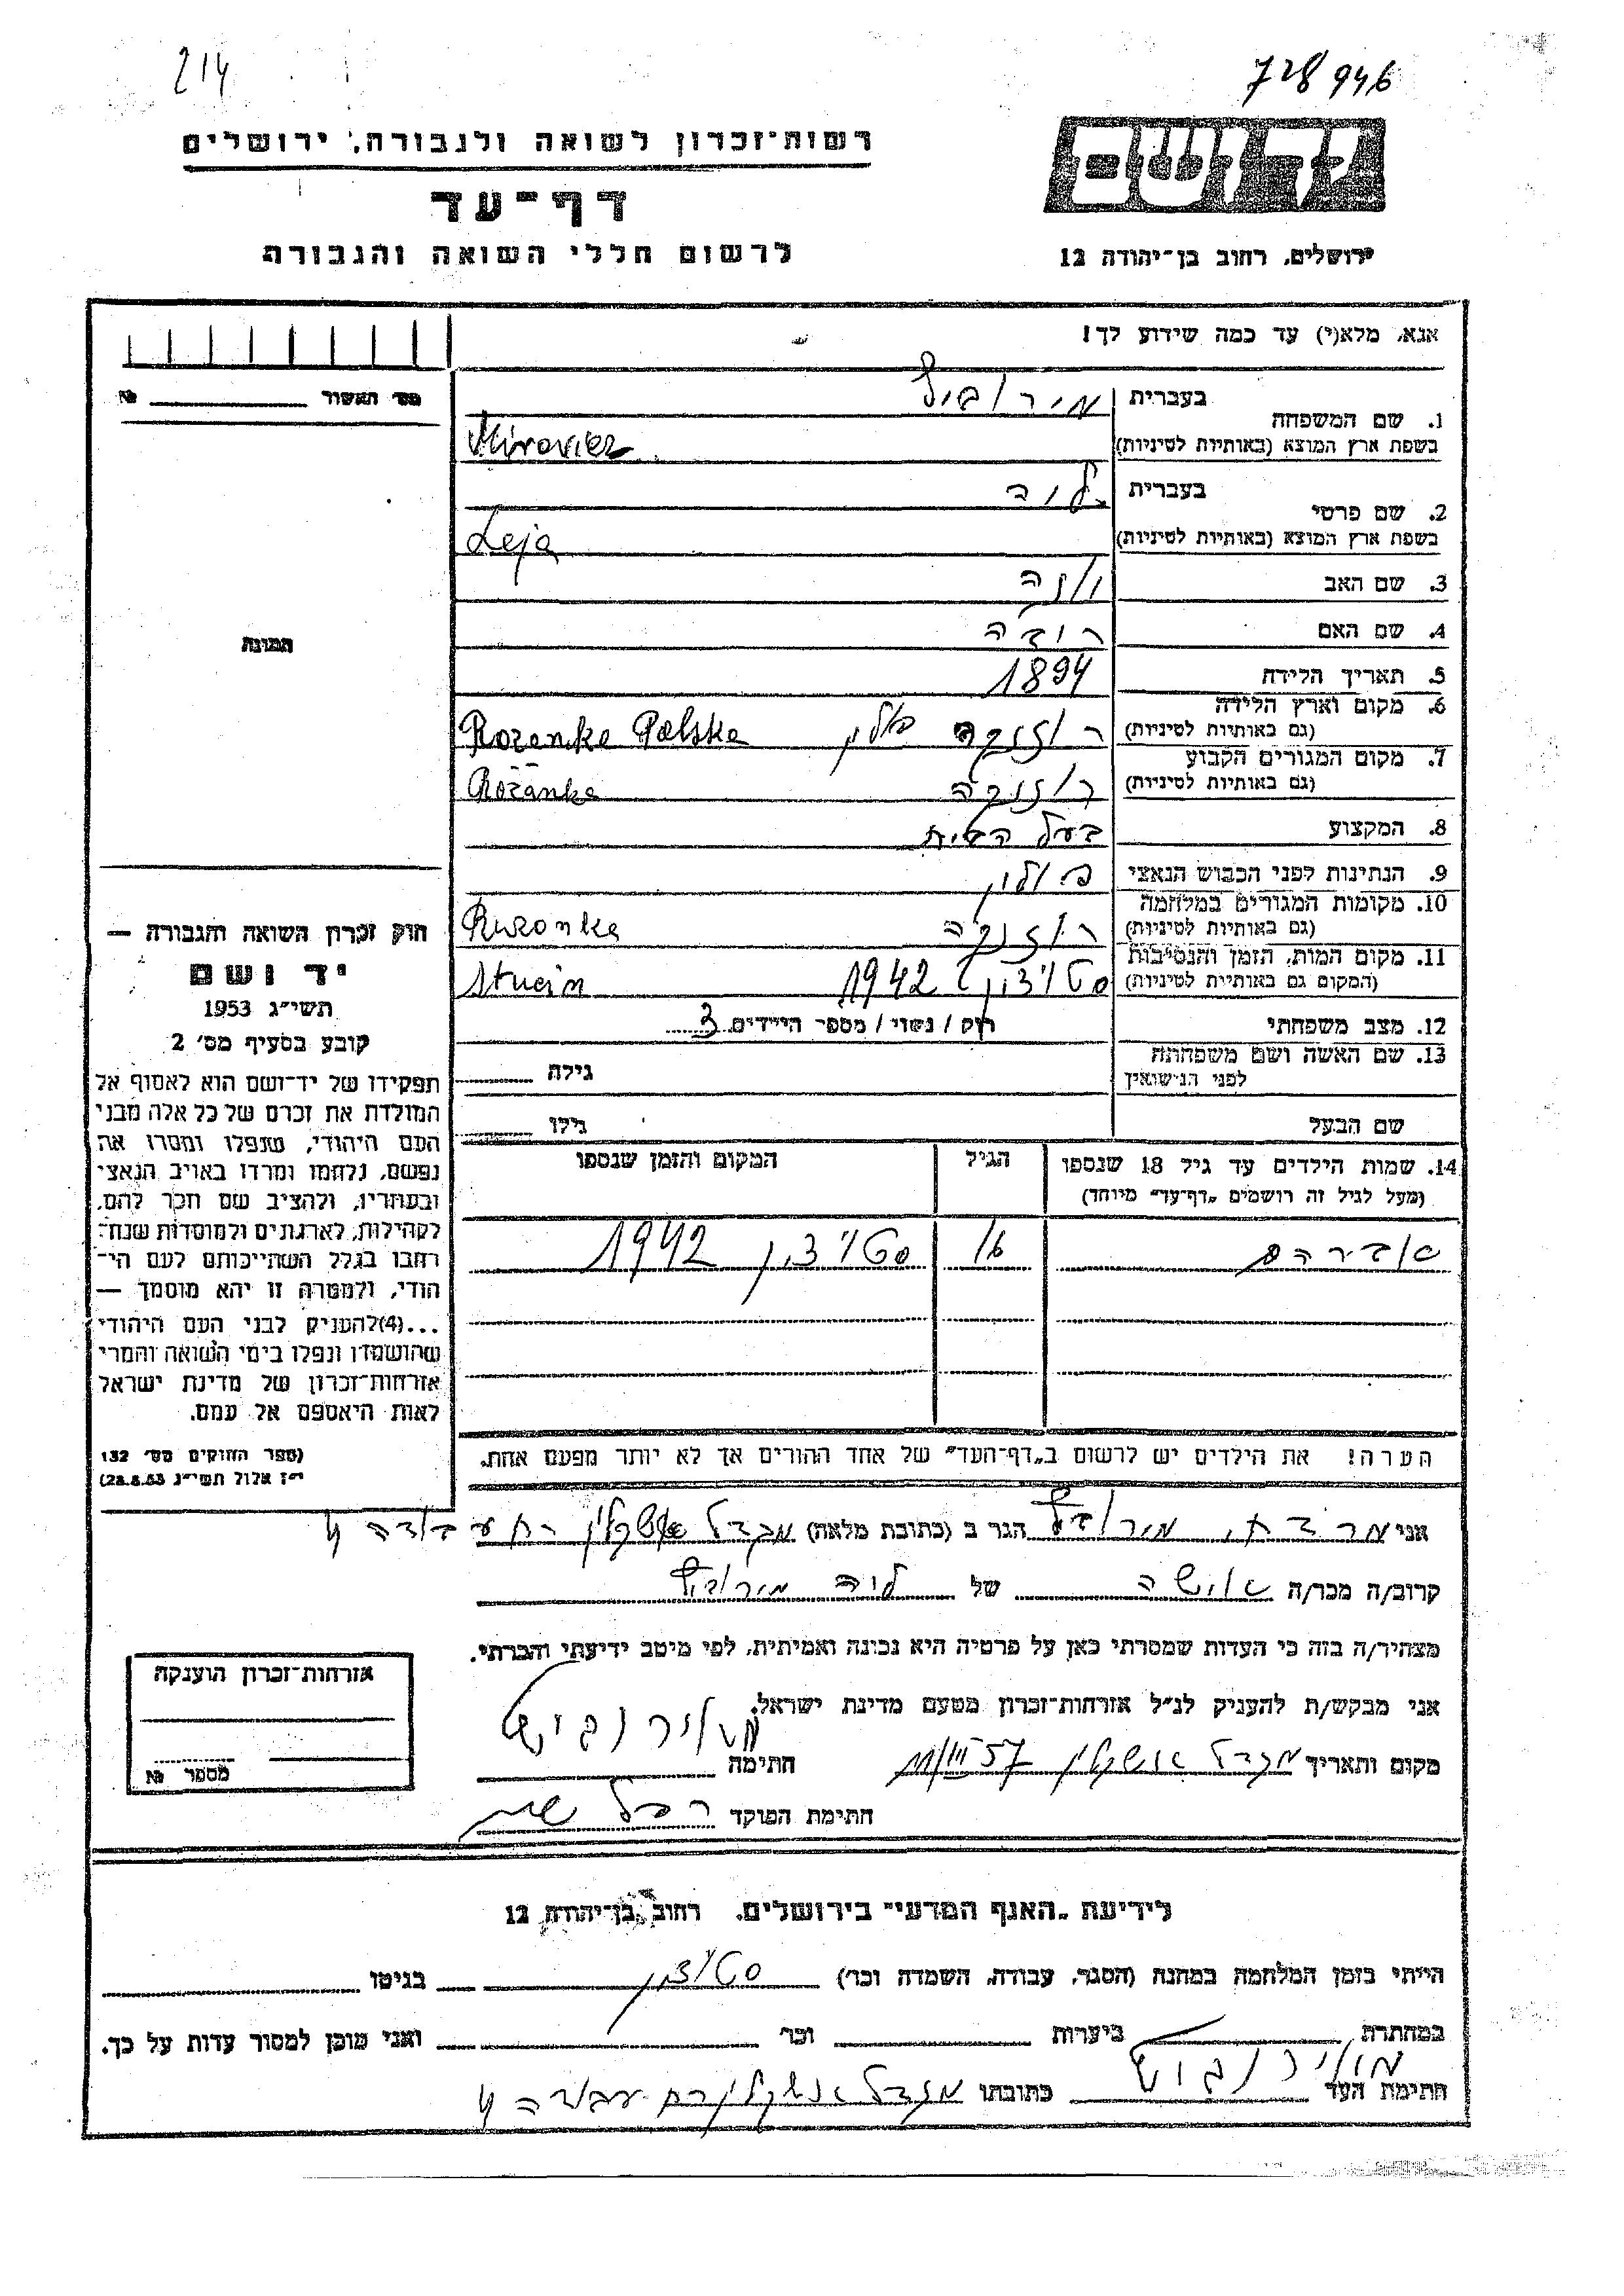 214
728946
רשות-זכרון לשואה ולגבורה, ירושלים
דף-עד
לרשום חללי השואה והגבורה
יד ושם
ירושלים, רחוב בן-יהודה 12
אנא, מלא(י) עד כמה שידוע לך!
מס' האשור № 
בעברית מירוביץ
1. שם המשפחה
בשפת ארץ המוצא (באותיות לטיניות) Mirovicz
בעברית
2. שם פרטי
בשפת ארץ המוצא (באותיות לטיניות) Leja
3. שם האב
4. שם האם
5. תאריך הלידה 1894
6. מקום וארץ הלידה
(גם באותיות לטיניות) רוזנקה פולין Rozanka Polska
7. מקום המגורים הקבוע
(גם באותיות לטיניות) רוזנקה Rozanka
8. המקצוע בעל הבית
9. הנתינות לפני הכבוש הנאצי פולין
10. מקומות המגורים במלחמה
(גם באותיות לטיניות) רוזנקה Ruzonka
11. מקום המות, הזמן והנסיבות
(המקום גם באותיות לטיניות) סטוצין 1942
12. מצב משפחתי רוק / נשוי / מספר הילדים 3
13. שם האשה ושם משפחתה
לפני הנישואין גילה
שם הבעל גילו
14. שמות הילדים עד גיל 18 שנספו
(מעל לגיל זה רושמים "דף-עד" מיוחד)
הגיל
המקום והזמן שנספו
אברהם סטוצין 1942
הערה! את הילדים יש לרשום ב"דף-העד" של אחד ההורים אך לא יותר מפעם אחת.
התמונה
חוק זכרון השואה והגבורה —
יד ושם
תשי"ג 1953
קובע בסעיף מס' 2
תפקידו של יד-ושם הוא לאסוף אל
המולדת את זכרם של כל אלה מבני
העם היהודי, שנפלו ומסרו את
נפשם, נלחמו ומרדו באויב הנאצי
ובעוזריו, ולהציב שם וזכר להם,
לקהילות, לארגונים ולמוסדות שנח-
רבו בגלל השתייכותם לעם הי-
הודי, ולמטרה זו יהא מוסמך —
...(4)להעניק לבני העם היהודי
שהושמדו ונפלו בימי השואה והמרי
אזרחות-זכרון של מדינת ישראל
לאות היאספם אל עמם.
(ספר החוקים מס' 132
י"ז אלול תשי"ג 28.8.53)
אני מרדכי מירוביץ הגר ב (כתובת מלאה) מגדל אשקלון רח עבודה
קרוב/ה מכר/ה של מירוביץ
מצהיר/ה בזה כי העדות שמסרתי כאן על פרטיה היא נכונה ואמיתית, לפי מיטב ידיעתי והכרתי.
אני מבקש/ת להעניק לנ"ל אזרחות-זכרון מטעם מדינת ישראל.
מקום ותאריך מגדל אשקלון 57 חתימה
חתימת הפוקד רחל
אזרחות-זכרון הוענקה
מספר №
לידיעת "האגף המדעי" בירושלים, רחוב בן-יהודה 12
הייתי בזמן המלחמה במחנה (הסגר, עבודה, השמדה וכו') סטוצין בגיטו
במחתרת ביערות וכו' ואני מוכן למסור עדות על כך.
חתימת העד כתובתו מגדל אשקלון